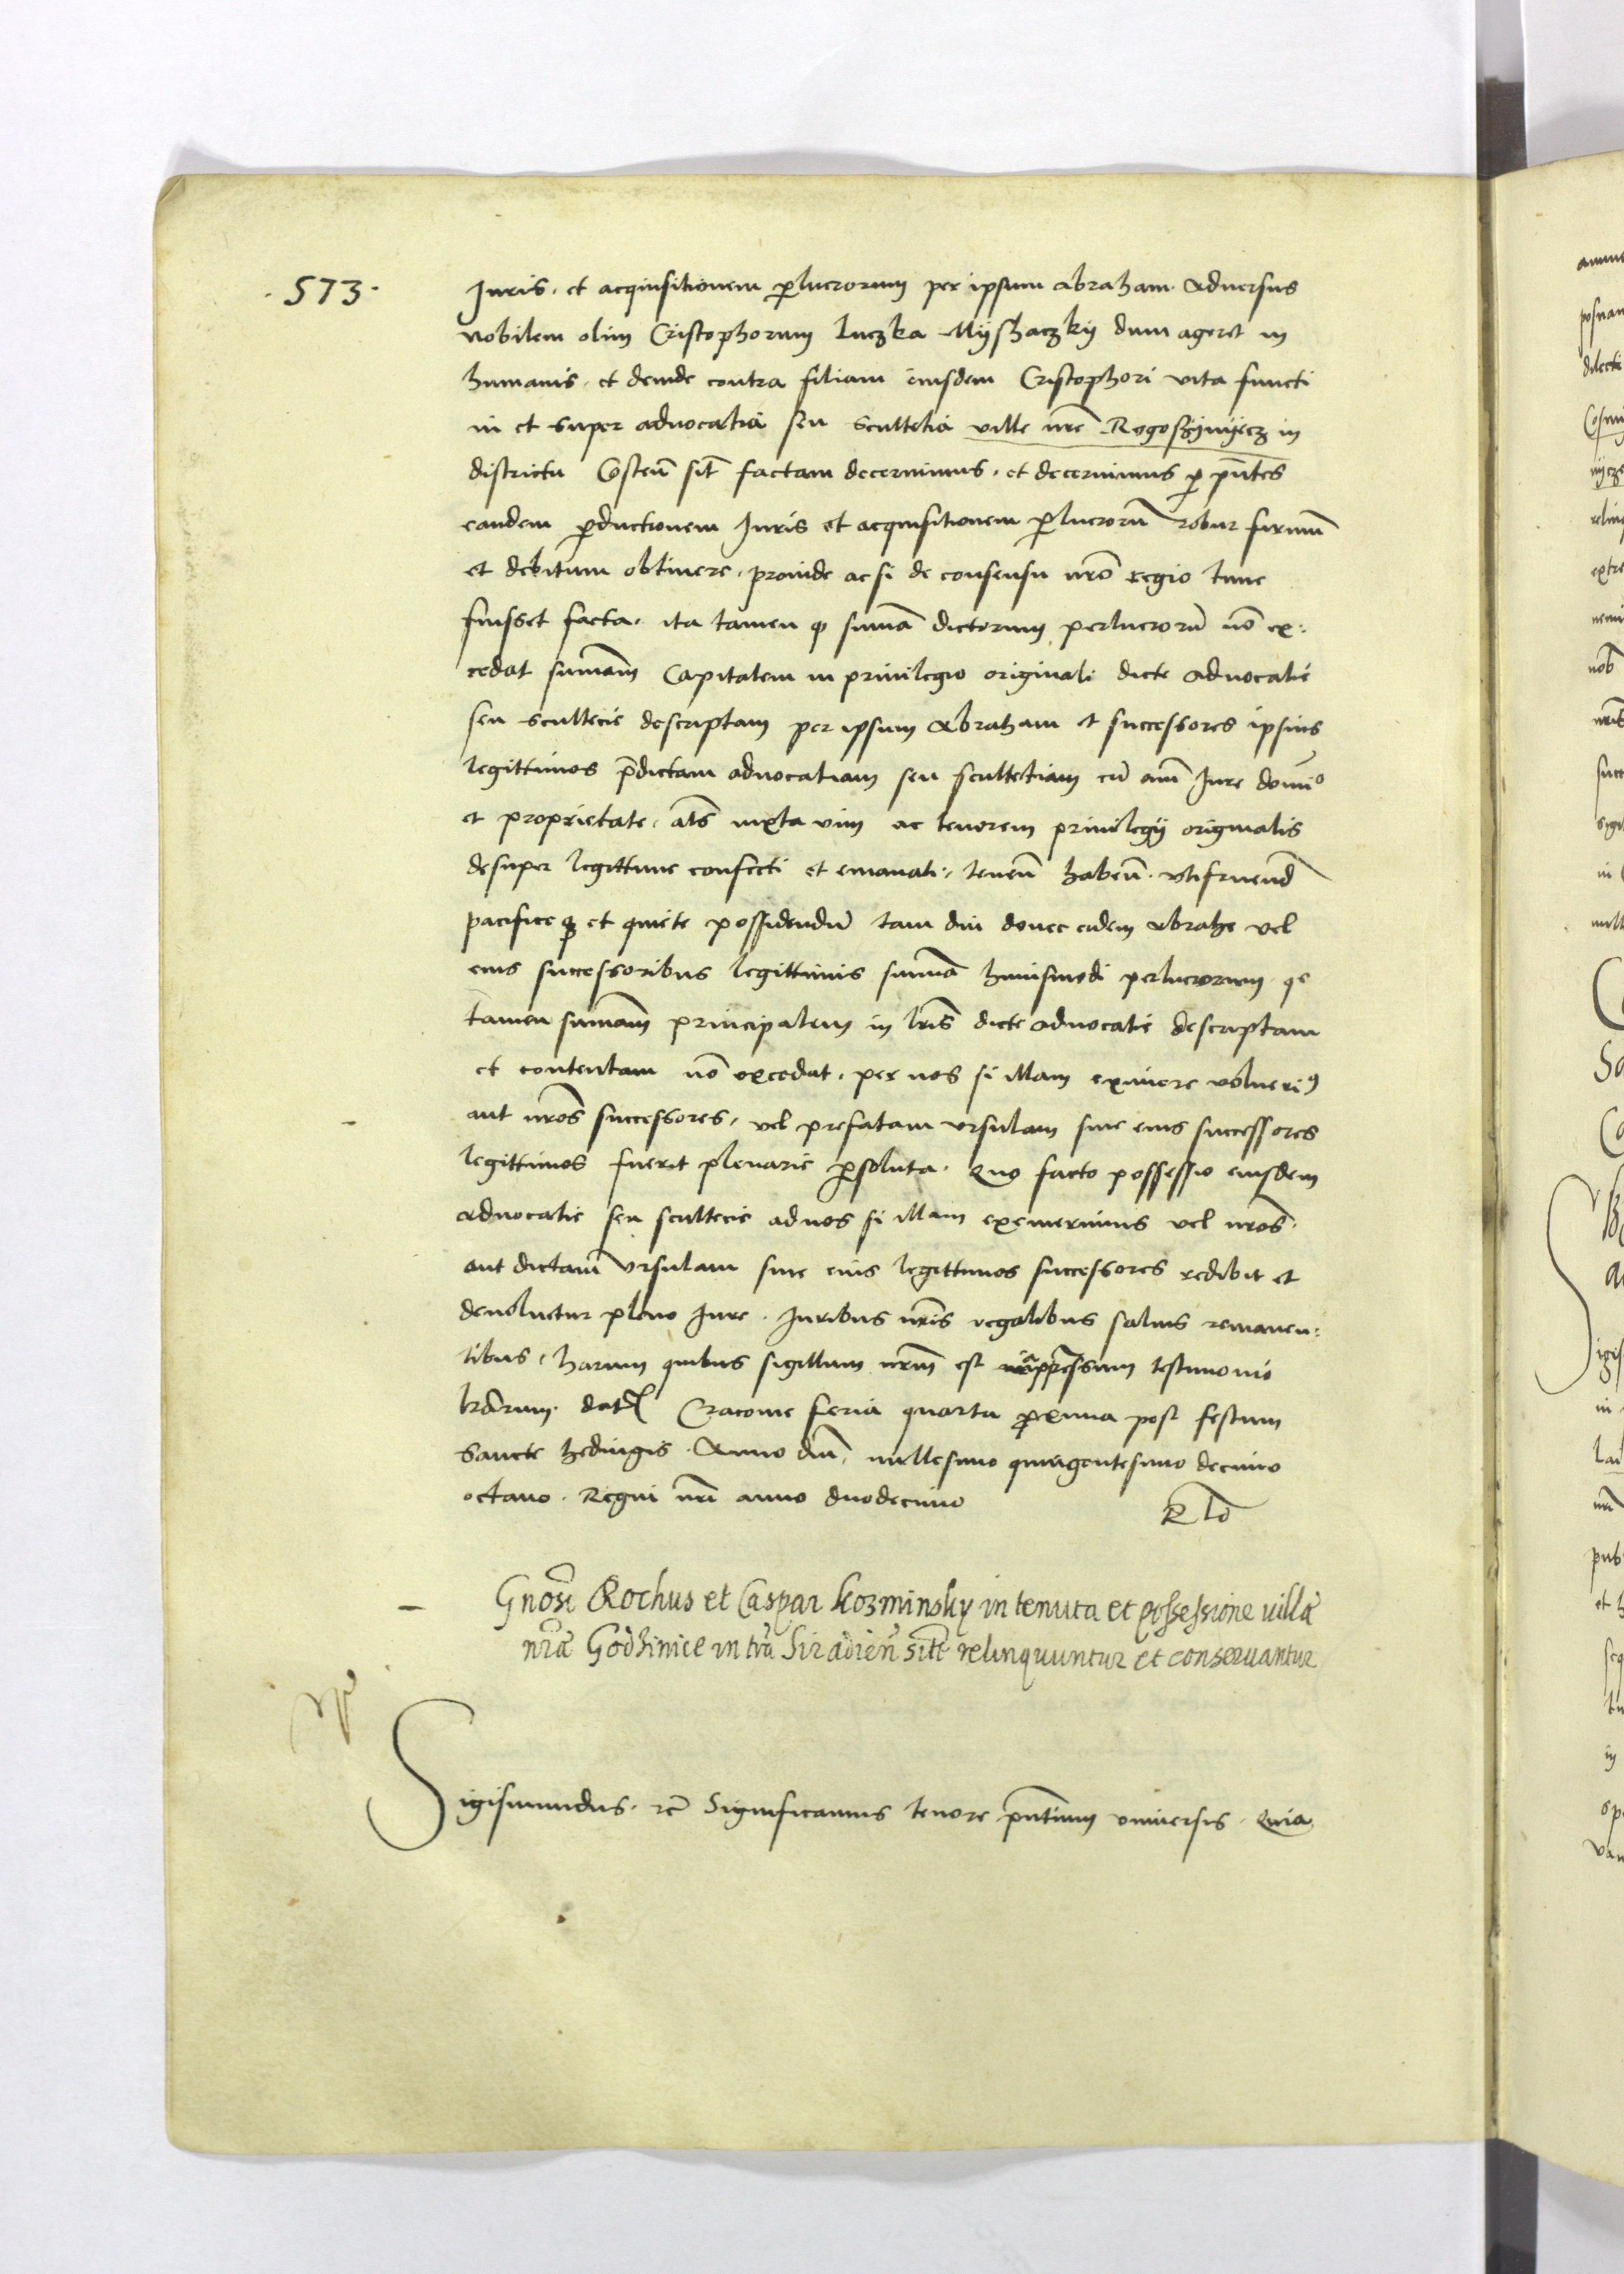 . 573 .
Juris . et acquisitionem p̲lucrorum per ipsum abraham . adversus
nobilem olim Cristophorum Luczka Mijszaczkij dum ageret in
humanis . et deinde contra filiam eiusdem Cristophori vita functi
in et super advocatia seu scultetia ville nr̃e Rogoszijnijecz in
districtu Costen̄ sit̄ factam decernimus . et decernimus p̲ pn̄tes
eandem p̲ductionem Juris et acquisitionem p̲lucrorū robur firmū
et debitum obtinere . proinde ac si de consensu nr̃o regio tunc
fuisset facta . ita tamen q̨ sum̄a dictorum perlucrorū nō ex:
cedat sum̄am Capitalem in privilegio originali dicte advocatie
seu scultecie descriptam per ipsum Abraham et successores ipsius
legittimos p̄dictam advocatiam seu scultetiam cū om̄i Jure domīo
et proprietate . al̄s iuxta vim ac tenorem privilegij originalis
desuper legittime confecti et emanati . tenen̄ haben̄ . utifruend̄
pacifice q̨ et quiete possidendū tam diu donec eidem Abrahe vel
eius successoribus legittimis sum̄a huiusmodi perlucrorum . que
tamen sum̄am principalem in lr̄is dicte advocatie descriptam
et contentam nō excedat . per nos si illam eximere voluerim9
aut nr̄os successores , vel prefatam ursulam sive eius successores
legittimos fuerit plenarie p̲soluta . Quo facto possessio eiusdem
advocatie seu scultecie ad nos si illam exemerimus vel nr̄os .
aut dictam Ursulam sive eius legittimos successores redibit et
devoluetur pleno Jure . Juribus nr̄is regalibus salvis remanen:
tibus , harum quibus sigillum nr̄m est appressum testimonio
lr̄arum . dat̄ Cracovie feria quarta p̲xima post festum
sancte hedvigis . Anno dn̄i , millesimo quingentesimo decimo
octavo . Regni nr̄i anno duodecimo
Gn̄osi Rochus et Caspar Kozminsky in tenuta et possessione villæ
nr̄æ Godzinice in tr̄a Siradien̄ sitæ relinquuntur et conservantur
Sigismundus . rc̄ Significamus tenore pn̄tium universis . Quia